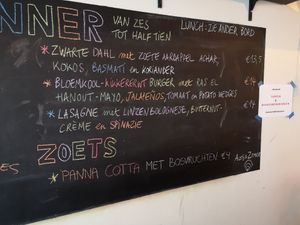 NNER VAN ZES TOT HALFTIEN
LUNCH - ZIE ANDER BORD
* ZWARTE DAHL MET ZOETE AARDAPPEL ACHAR, €13,5
KOKOS, BASMATI EN KORIANDER
* BLOEMKOOL-KIKKERERWT BURGER MET RAS EL €14
HANOUT-MAYO, JALAPEÑOS, TOMAAT EN POTATO WEDGES
* LASAGNE MET LINZENBOLOGNESE, BUTTERNUT- €14
CRÈME EN SPINAZIE
ZOETS
* PANNA COTTA MET BOSVRUCHTEN €4